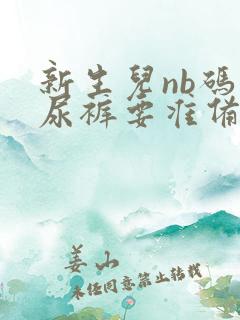 新生兒nb碼
尿褲要准備
姜山
未经同意禁止转载